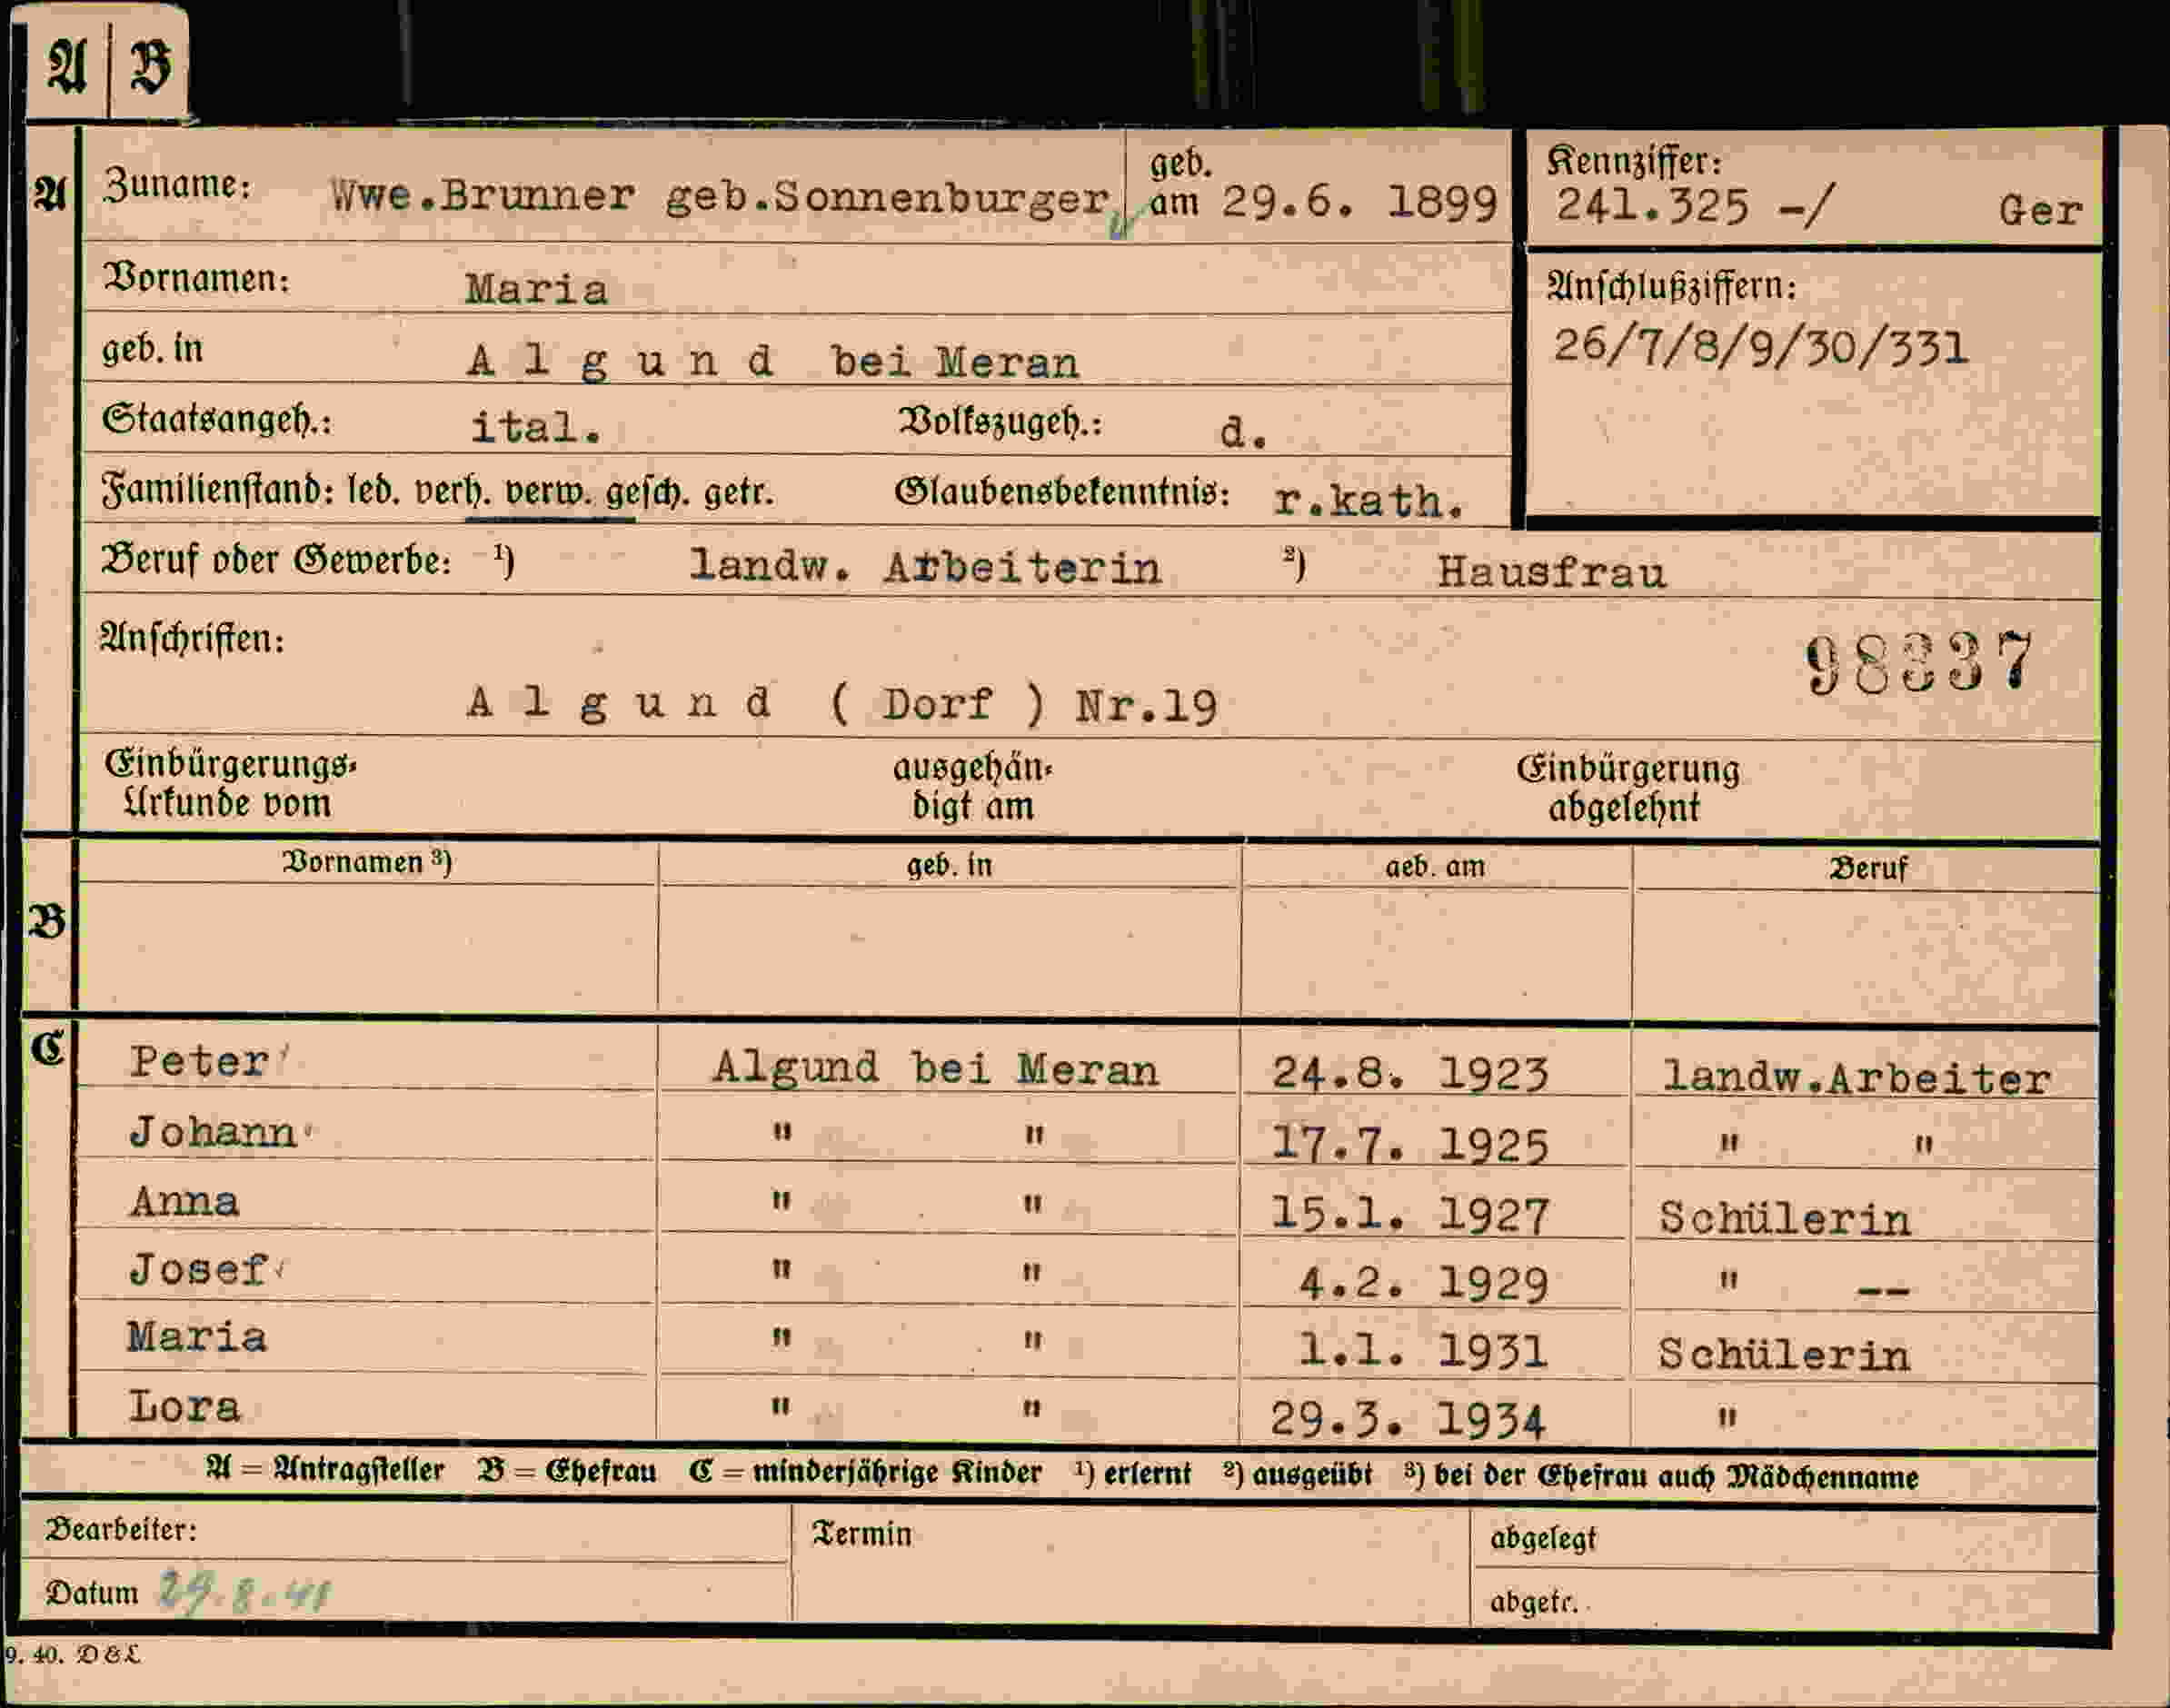 A B
A Zuname: Wwe.Brunner geb.Sonnenburger geb. am 29.6. 1899
Kennziffer:
241.325 -/ Ger
Vornamen: Maria
Anschlußziffern:
26/7/8/9/30/331
geb. in A l g u n d bei Meran
Staatsangeh.: ital. Volkszugeh.: d.
Familienstand: led. verh. verw. gesch. getr. Glaubensbekenntnis: r.kath.
Beruf oder Gewerbe: ¹) landw. Arbeiterin ²) Hausfrau
Anschriften:
98337
A l g u n d ( Dorf ) Nr.19
Einbürgerungs- ausgehän- Einbürgerung
Urkunde vom digt am abgelehnt
Vornamen ³) geb. in geb. am Beruf
B
C Peter Algund bei Meran 24.8. 1923 landw.Arbeiter
Johann " " 17.7. 1925 " "
Anna " " 15.1. 1927 Schülerin
Josef " " 4.2. 1929 " --
Maria " " 1.1. 1931 Schülerin
Lora " " 29.3. 1934 "
A = Antragsteller B = Ehefrau C = minderjährige Kinder ¹) erlernt ²) ausgeübt ³) bei der Ehefrau auch Mädchenname
Bearbeiter: Termin abgelegt
Datum 29.8.41 abgetr.
9. 40. D & L